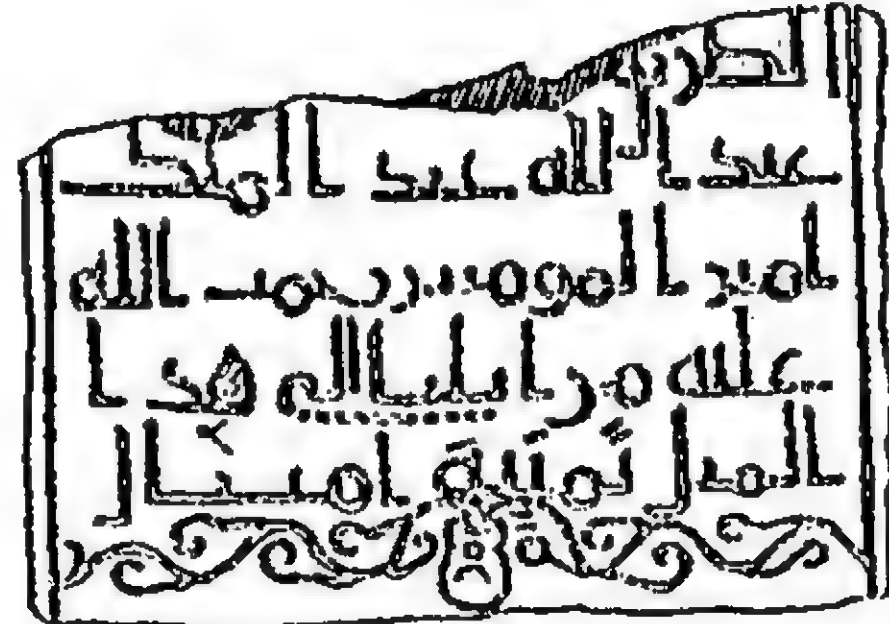 عبد الله عبد الملك
امير المومنين رحمت الله
عليه من ايليا الى هذا
الميل ثمنية اميال